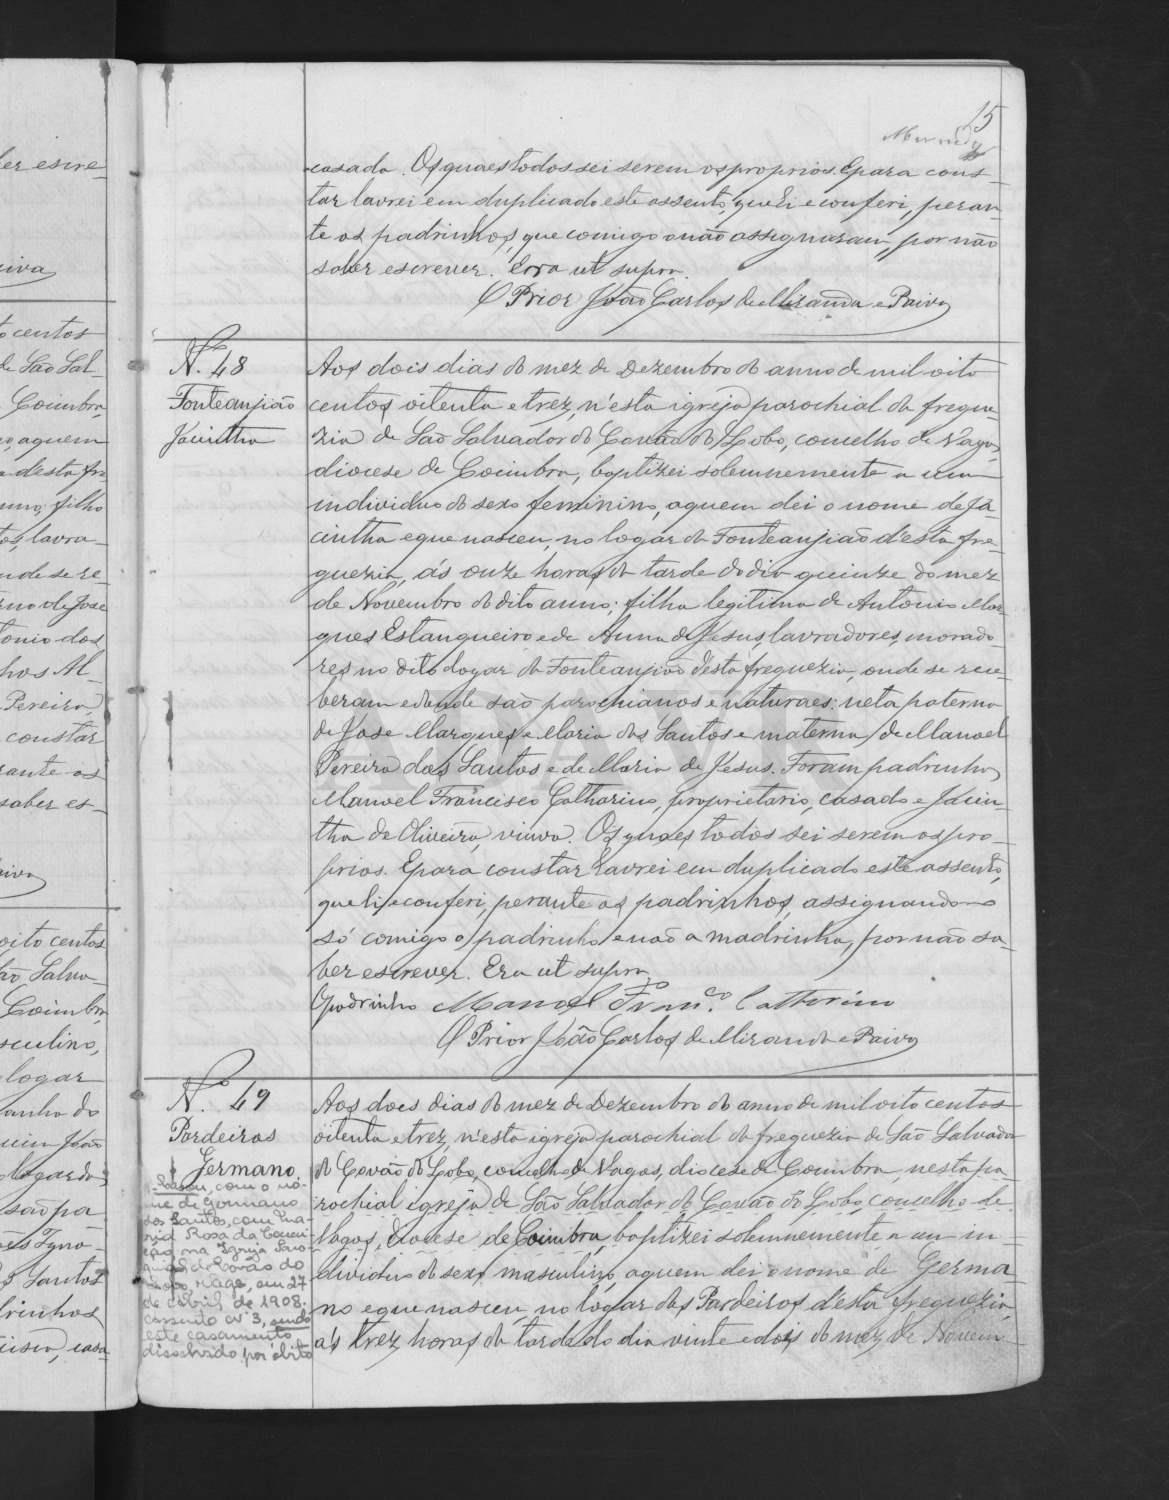 15
casada. Os quaes todos sei serem os proprios. E para cons-
tar lavrei em duplicado este assento, que li e conferi, peran-
te os padrinhos, que comigo não assignaram, por não
saber escrever. Era ut supra.
O Prior João Carlos de Miranda e Paiva
N.º 48
Fonteanjião
Jacintha
Aos dois dias do mez de Dezembro do anno de mil oito
centos oitenta e trez, n'esta igreja parochial da fregue-
zia de São Salvador do Covão do Lobo, concelho de Vagos,
diocese de Coimbra, baptizei solemnemente a um
individuo do sexo feminino, a quem dei o nome de Ja-
cintha e que nasceu, no logar da Fonteanjião d'esta fre-
guezia, ás onze horas da tarde do dia quinze do mez
de Novembro do dito anno; filha legitima de Antonio Mar-
ques Estanqueiro e de Anna de Jesus, lavradores, morado-
res no dito logar da Fonteanjião d'esta freguezia, onde se rece-
beram e donde são parochianos e naturaes: neta paterna
de Jose Marques e Maria dos Santos e materna de Manoel
Pereira dos Santos e de Maria de Jesus. Foram padrinhos
Manoel Francisco Catharino, proprietario, casado e Jacin-
tha de Oliveira, viuva. Os quaes todos sei serem os pro-
prios. E para constar lavrei em duplicado este assento,
que li e conferi, perante os padrinhos, assignando
só comigo o padrinho e não a madrinha, por não sa-
ber escrever. Era ut supra.
O padrinho Manoel Fran.co Catharino
O Prior João Carlos de Miranda e Paiva
N.º 49
Pardeiros
Germano.
Casou, com o no-
me de Germano
dos Santos, com Ma-
ria Rosa da Concei-
ção, na Igreja Paro-
quial do Covão do
Lobo, Vagos, em 27
de Abril de 1908.
assento nº 3, sendo
este casamento
dissolvido por óbito
Aos dois dias do mez de Dezembro do anno de mil oito centos
oitenta e trez, n'esta igreja parochial da freguezia de São Salvador
do Covão do Lobo, concelho de Vagos, diocese de Coimbra, nesta pa-
rochial igreja de São Salvador do Covão do Lobo, concelho de
Vagos, diocese de Coimbra, baptizei solemnemente a um in-
dividuo do sexo masculino, a quem dei o nome de Germa-
no e que nasceu, no logar dos Pardeiros d'esta freguezia,
ás trez horas da tarde do dia vinte e dois do mez de Novem-